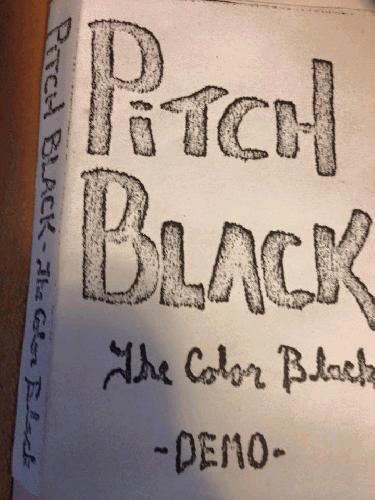 PITCH BLACK - The Color Black
PiTCH
BLACK
The Color Black
-DEMO-